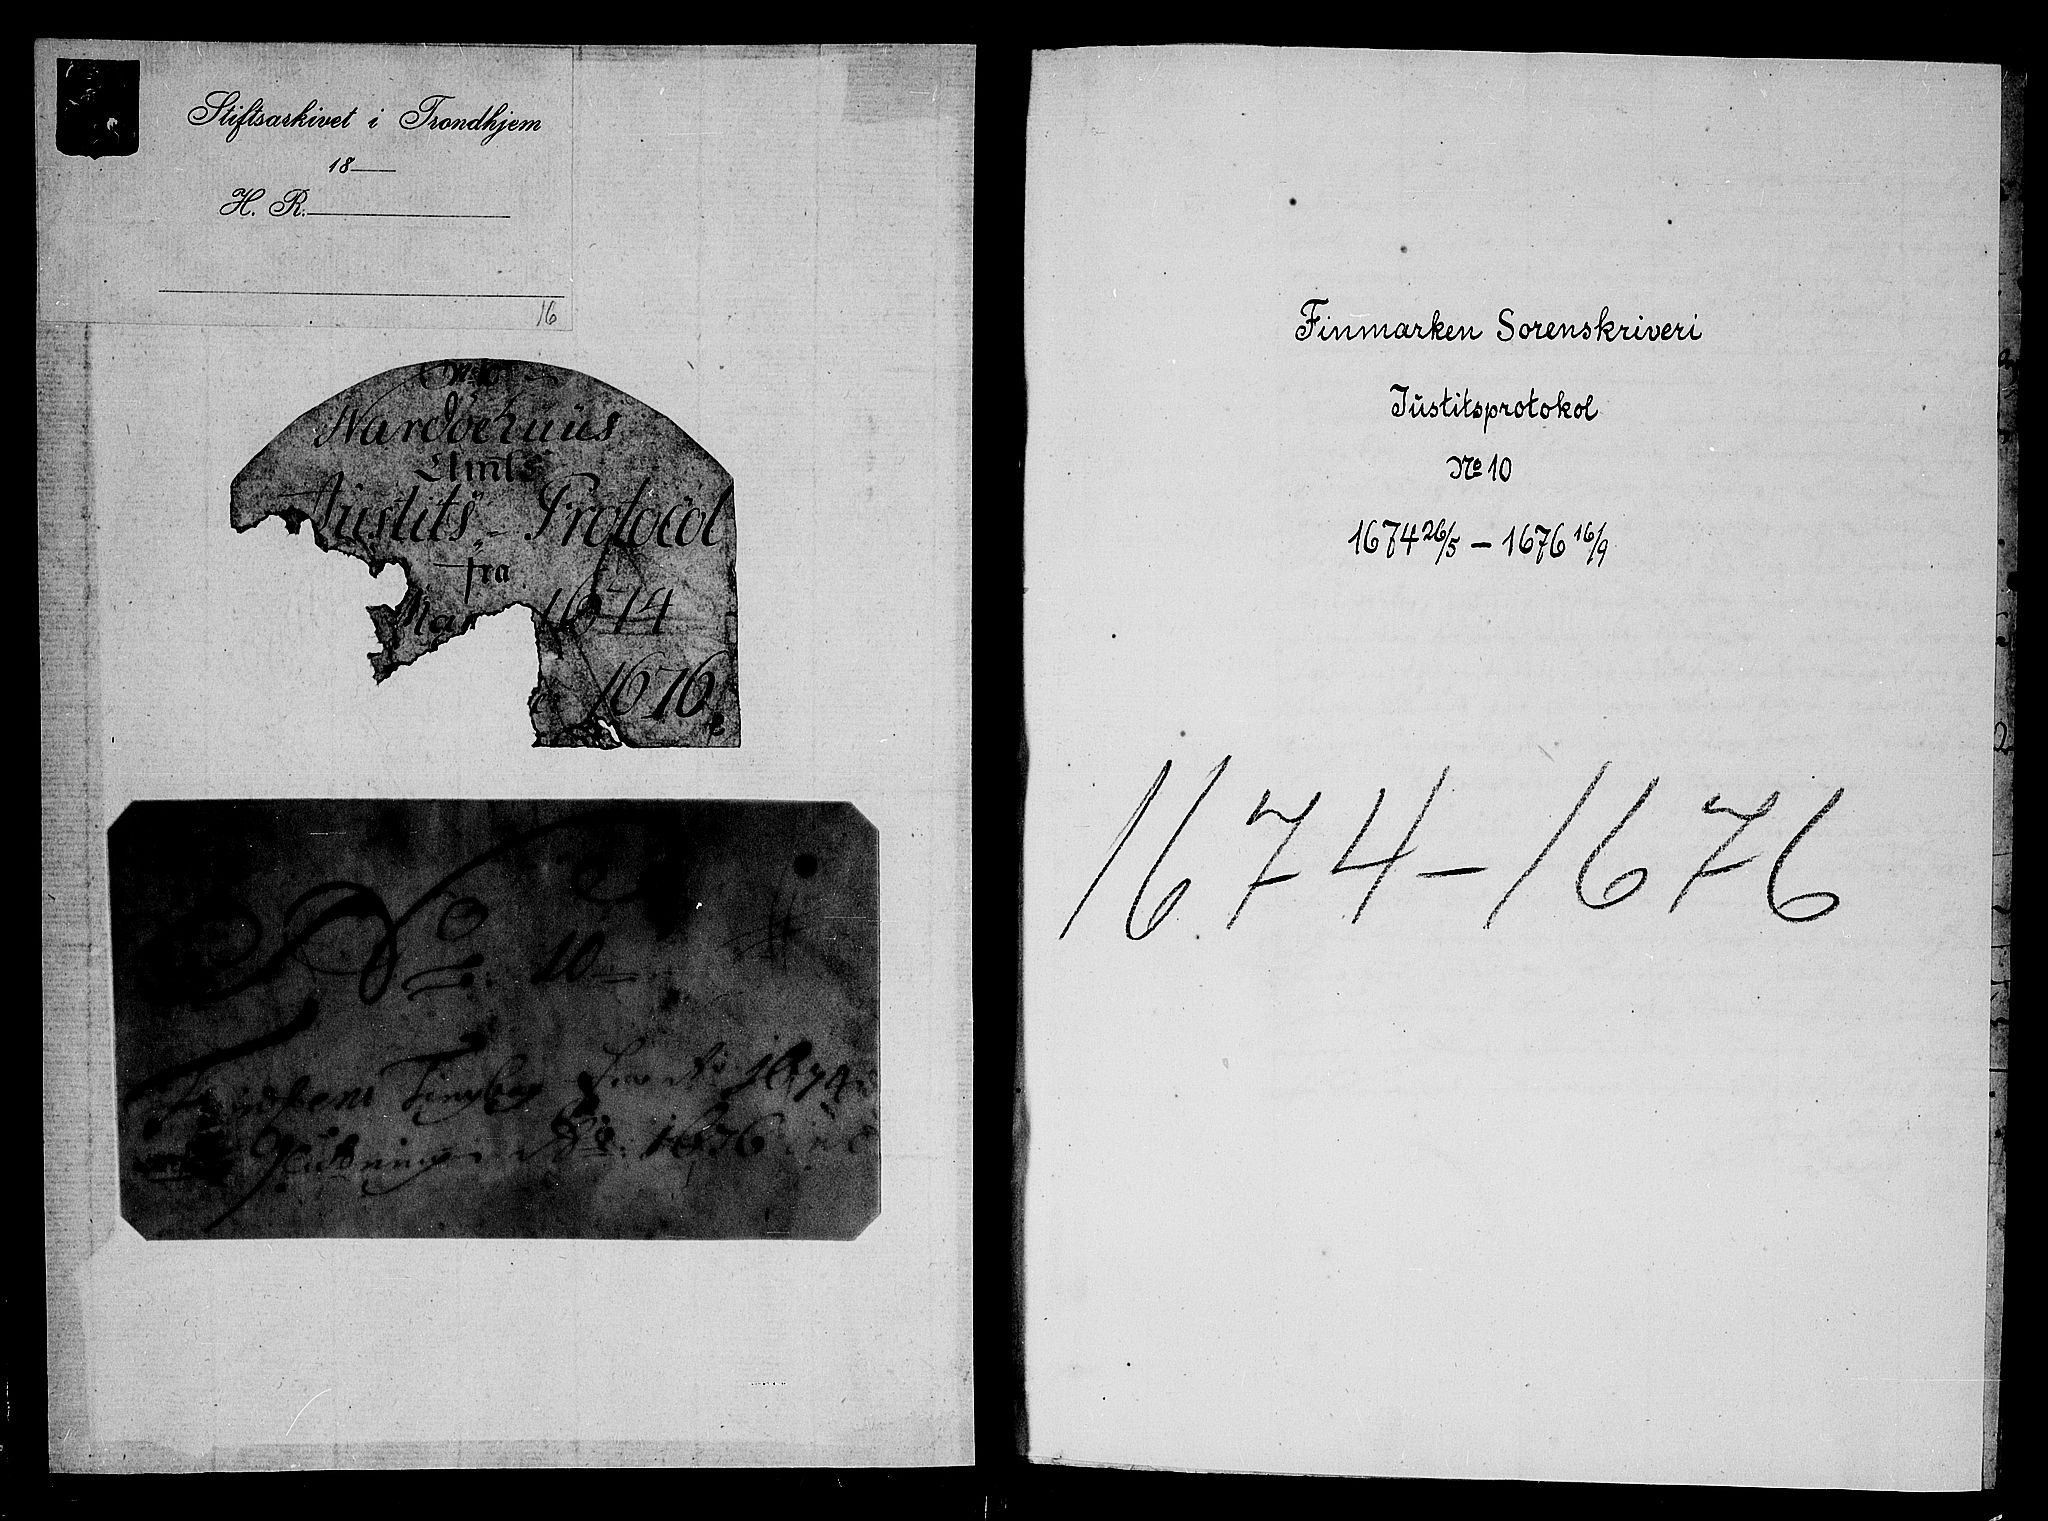 Stiftsarkivet i Trondhjem
18
H. R.
16
No 10
Wardöehuus
Amts
Justits Protocol
fra
1674
1676
No. 10
Tingbog 1674
1676
Finmarken Sorenskriveri
Justitsprotokol
No 10
1674 26/5 — 1676 16/9
1674-1676